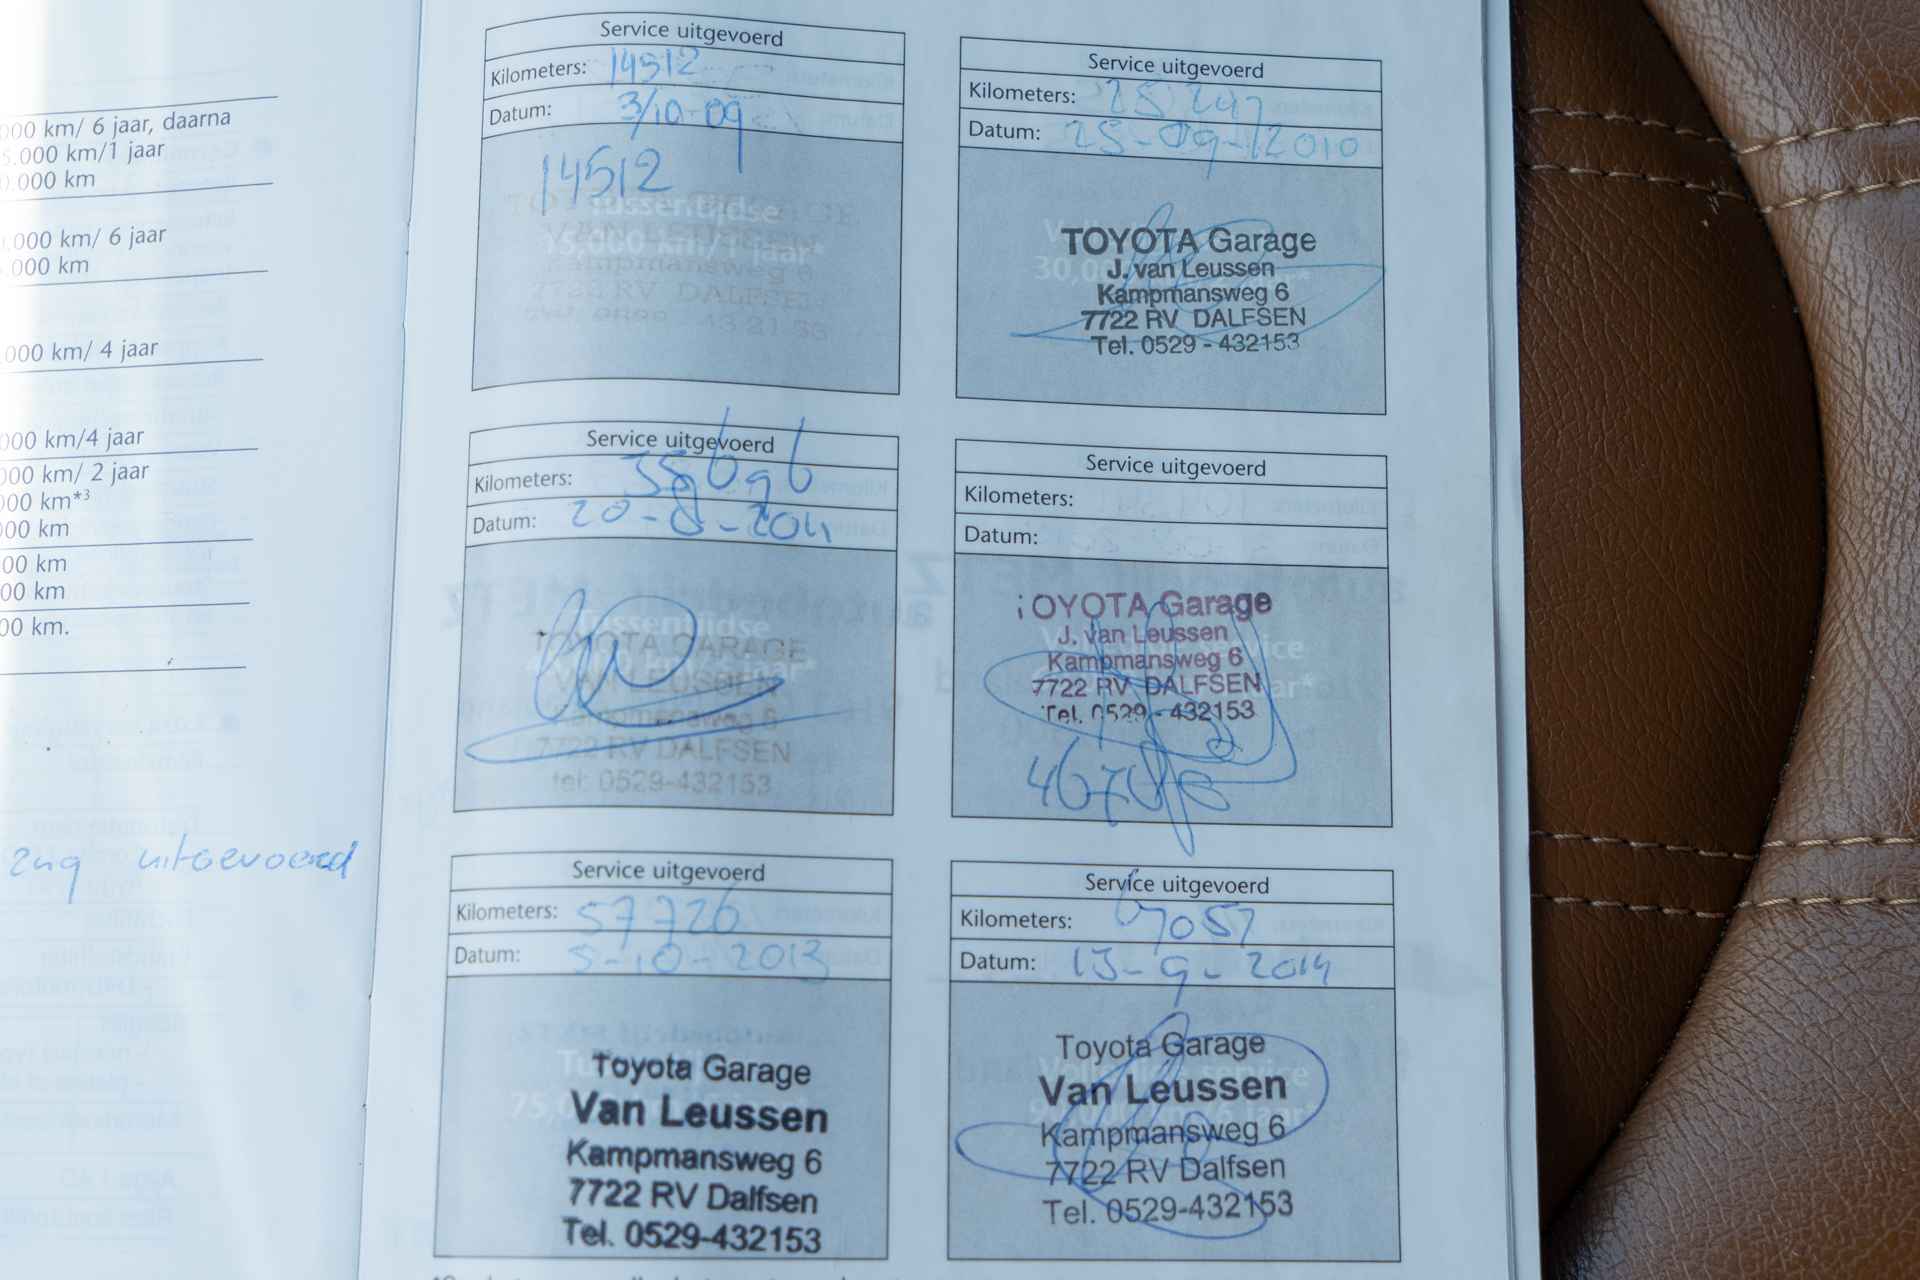 000 km/ 6 jaar, daarna
5.000 km/1 jaar
0.000 km
.000 km/ 6 jaar
.000 km
000 km/ 4 jaar
000 km/4 jaar
000 km/ 2 jaar
000 km*3
000 km
00 km
00 km
00 km.
uitgevoerd
Service uitgevoerd
Kilometers: 14512
Datum: 3/10-09
14512
Tussentijdse
15.000 km/1 jaar*
VAN LEUSSEN
Kampmansweg 6
7722 RV DALFSEN
Service uitgevoerd
Kilometers: 25247
Datum: 25-09-/2010
TOYOTA Garage
J. van Leussen
30,0
Kampmansweg 6
7722 RV DALFSEN
Tel. 0529 - 432153
Service uitgevoerd
Kilometers: 35696
Datum: 20-8-2011
Tussentijdse
TOYOTA GARAGE
VAN LEUSSEN
Kampmansweg 6
7722 RV DALFSEN
tel: 0529-432153
Service uitgevoerd
Kilometers:
Datum:
TOYOTA Garage
J. van Leussen
Kampmansweg 6
7722 RV DALFSEN
Tel. 0529 - 432153
Service uitgevoerd
Kilometers: 57726
Datum: 5-10-2013
Toyota Garage
75,0
Van Leussen
Kampmansweg 6
7722 RV Dalfsen
Tel. 0529-432153
Service uitgevoerd
Kilometers: 67057
Datum: 13-9-2014
Toyota Garage
Volledige service
Van Leussen
Kampmansweg 6
7722 RV Dalfsen
Tel. 0529-432153